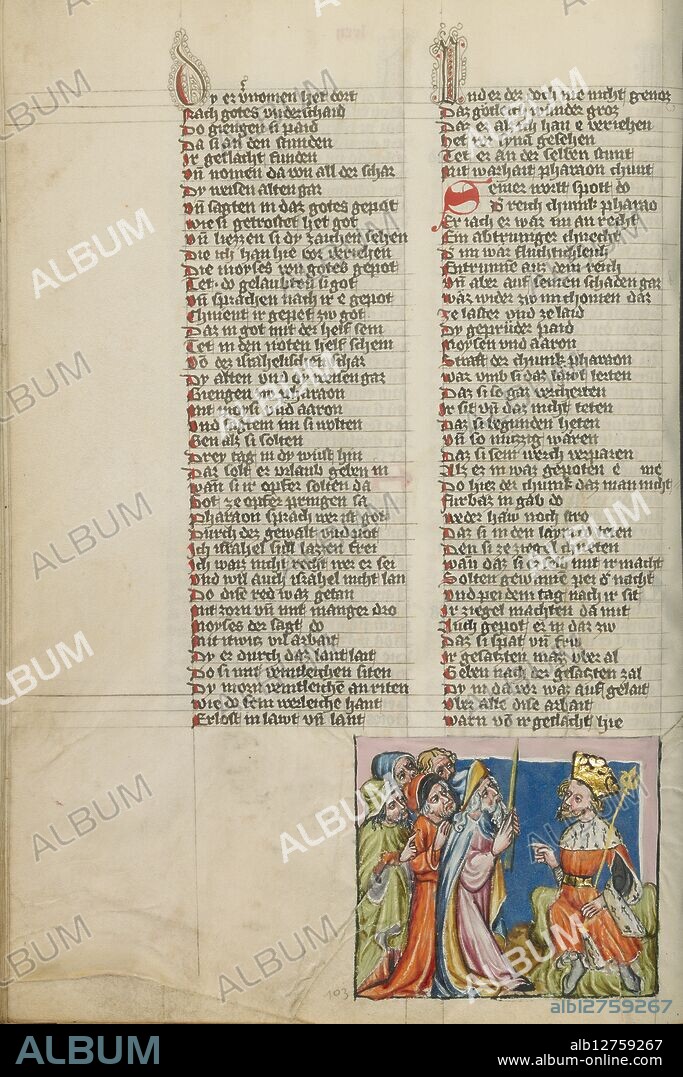 Dy er vnomen het dort
Nach gotes vnderschaid
Do giengen si paid
Da si an den stunden
Ir geslacht funden
Vñ nomen da von all der schar
Dy weisen alten gar
Vñ sagten in daz gotes gepot
Wie si getrostet het got
Vñ liezzen si dy zaichen sehen
Die ich han hie vor veriehen
Die moyses von gotes gepot
Tet do gelaubten si got
Vñ sprachen nach ir e gepot
Chnient ir gepet zw got
Daz in got mit der helf sein
Tet in den noten helf schein
Von der israhelischen schar
Dy alten vnd dy weisen gar
Giengen fur pharaon
Mit moyse vnd aaron
Vnd sagten im si wolten
Gen alz si solten
Drey tag in dy wust hin
Daz solt er vrlaub geben in
Wan si ir opfer solten da
Got ze opfer pringen sa
Pharaon sprach wer ist got
Durch der gewalt vnd pot
Ich israhel sull lazzen frei
Ich waiz nicht recht wer er sei
Vnd wil auch israhel nicht lan
Do dise red waz getan
Mit zorn vñ mit manger dro
Moyses der sagt do
Mit itwitz vil arbait
Dy er durch daz lant lait
Do si mit veintleichen siten
Dy morn veintleichen an riten
Wie do sein werleiche hant
Erlost in lawt vñ lant
Vnd er der doch nie nicht genoz
Daz gotleich wunder groz
Daz er als ich han e veriehen
Het von synai gesehen
Tet er an der selben stunt
Mit warhait pharaon chunt
Seiner wort spott do
D reich chunik pharao
Er iach er wær im an recht
Ein abtruniger chnecht
D im wær fluchtichleich
Entrunne auz dem reich
Vñ aber auf seinen schaden gar
Wær wider zw im chomen dar
Ze laster vnd ze laid
Dy geprüder paid
Moysen vnd aaron
Straft der chunik pharaon
War vmb si daz lawt lerten
Daz si so gar vercherten
Ir sit vñ daz nicht teten
Daz si begunden heten
Vñ so muzzig wären
Daz si sein werch verparen
Alz er in waz gepoten e me
Do hiez der chunik daz man nicht
Furbaz in gäb do
Weder haw noch stro
Daz si in den laym da teten
Den si ze ziegel chneten
Wan daz si daz selb mit ir macht
Solten gewinne pei d nacht
Vnd pei dem tag nach ir sit
Ir ziegel machten da mit
Auch gepot er in daz zw
Daz si spat vñ fru
Ir gesatzten maz vber al
Geben nach der gesatzten zal
Dy in da vor waz auf gelait
Vber alte dise arbait
Warn võ ir geslacht hie
103
ALBUM
alb12759267
ALBUM
alb12759267
www.album-online.com